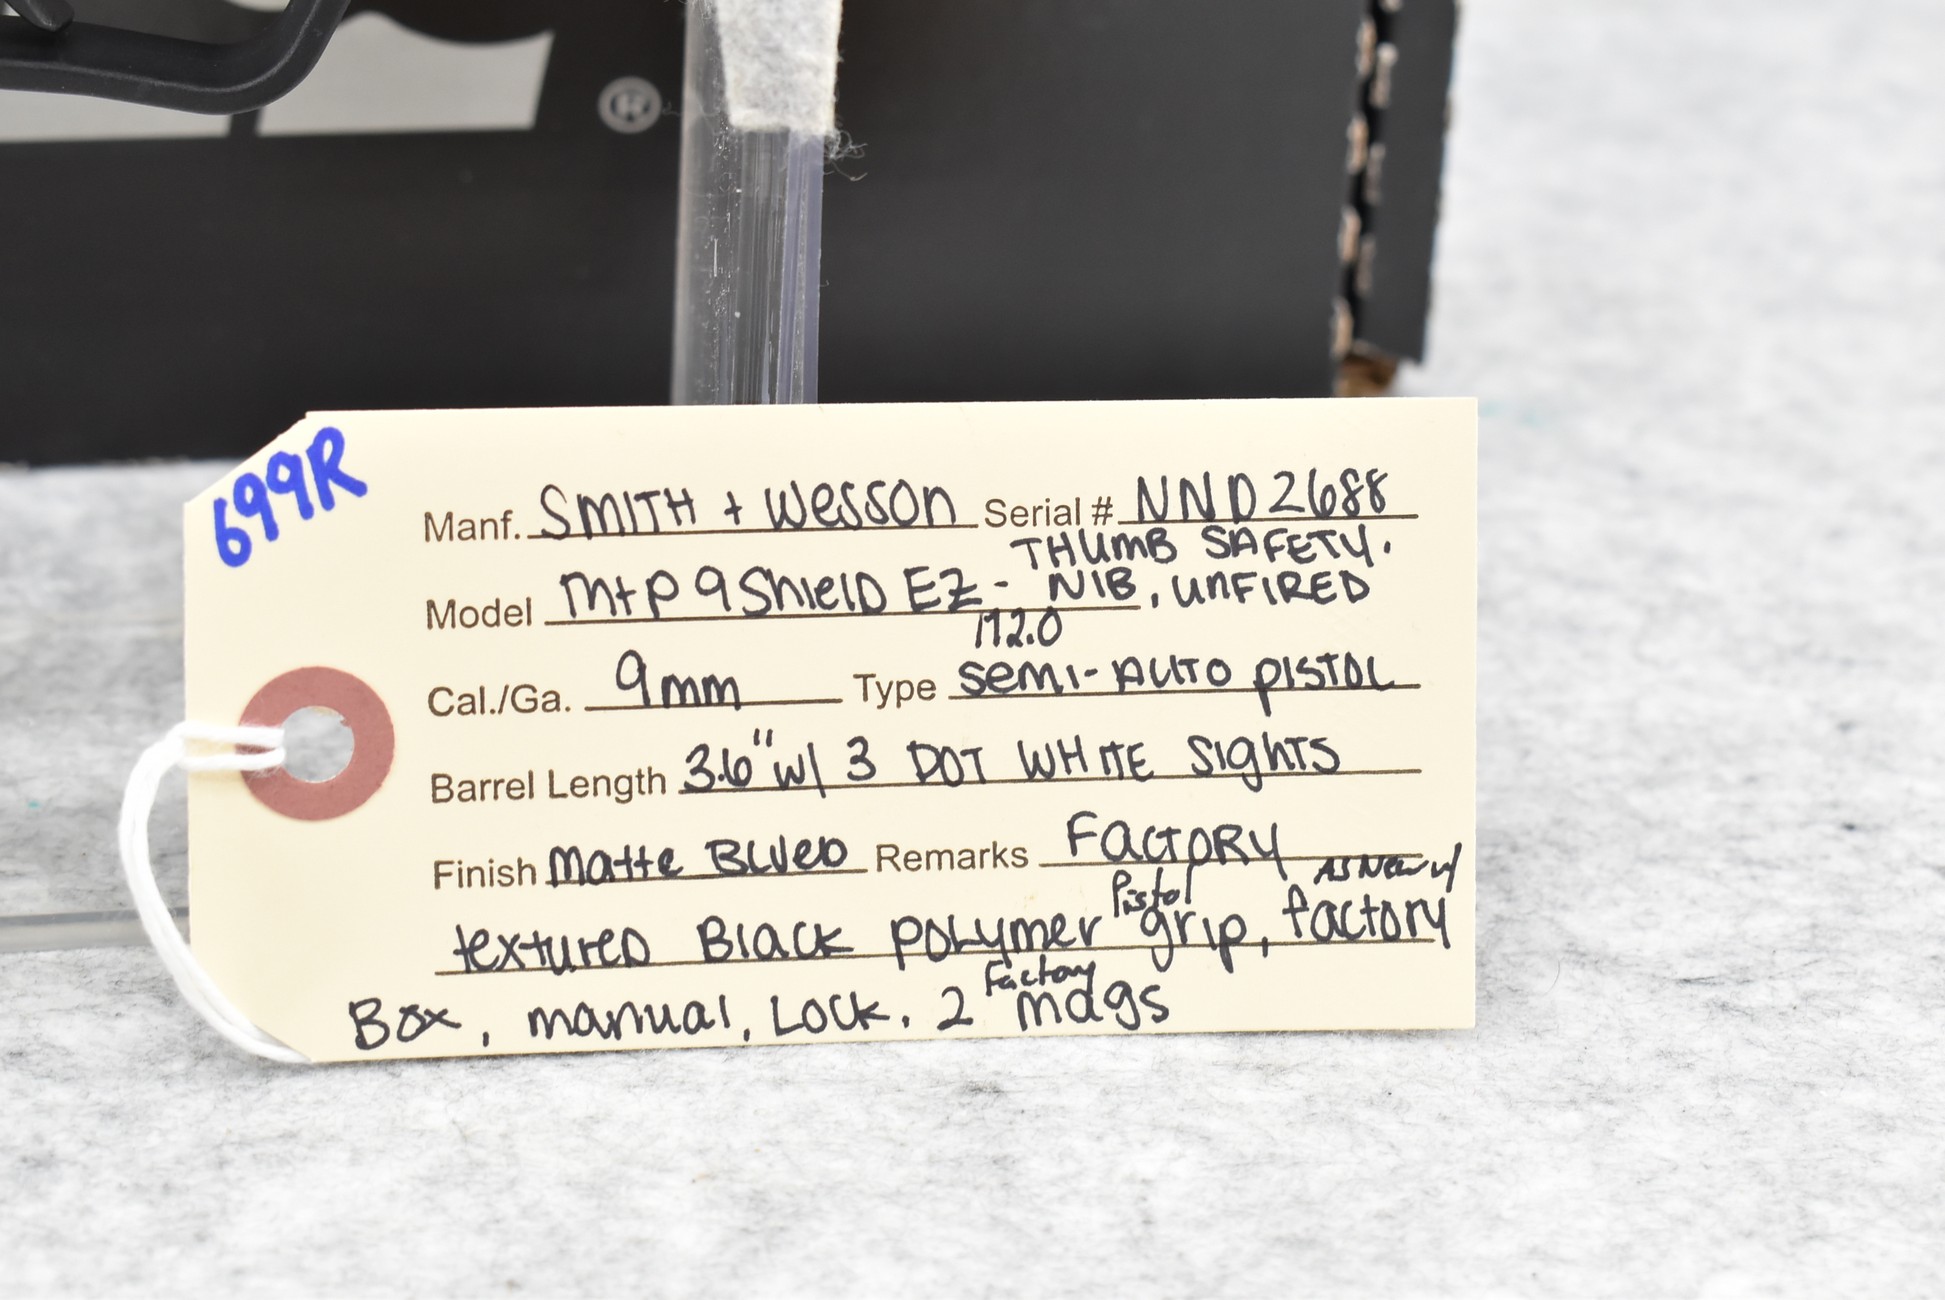 ®
699R
Manf. SMITH + Wesson Serial # NND2688
THUMB SAFETY.
Model M+P 9 Shield EZ - NIB, UNFIRED
M2.0
Cal./Ga. 9mm Type Semi-Auto Pistol
Barrel Length 3.6" w/ 3 DOT WHITE Sights
Finish Matte Blued Remarks Factory
As New w/
Pistol
textured Black polymer grip, factory
Factory
Box, manual, Lock. 2 mags